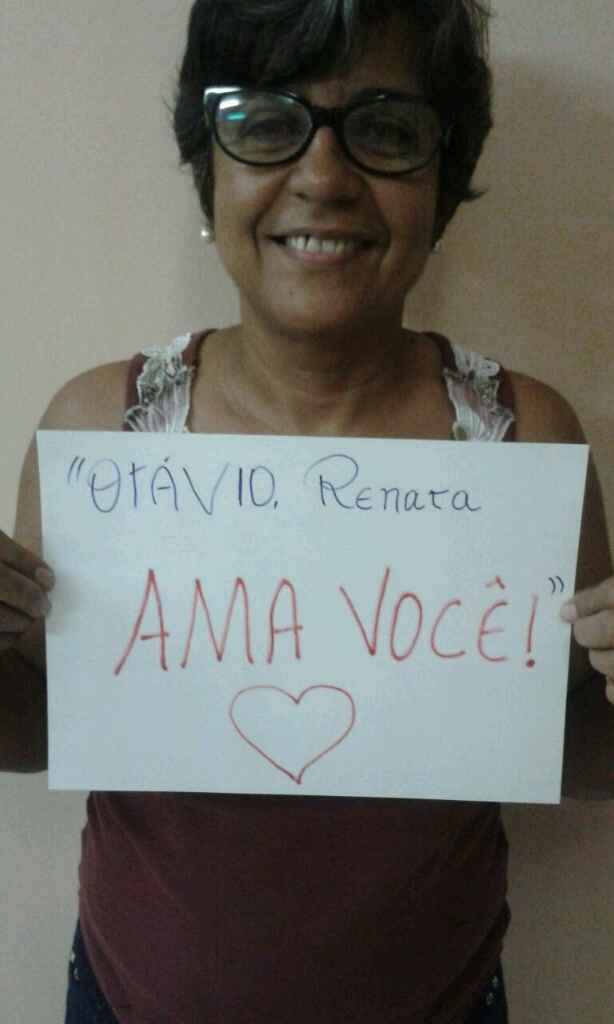 "OTÁVIO, Renata
AMA VOCÊ!"